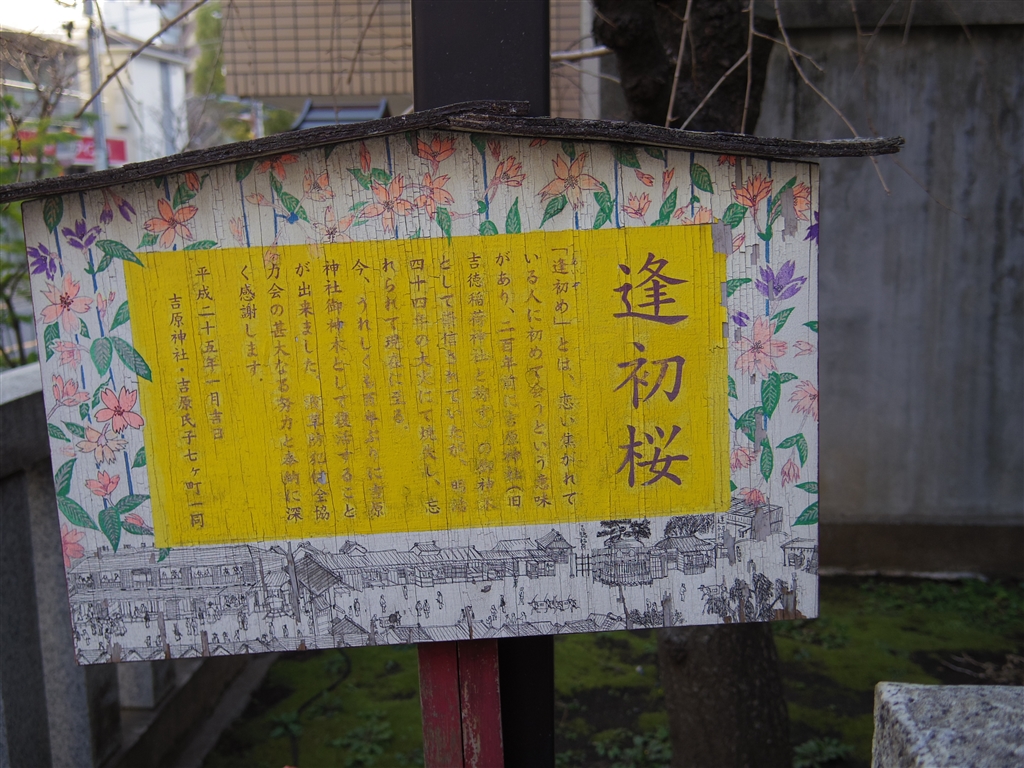 逢初桜
「逢初め」とは、恋い焦がれて
いる人に初めて会うという意味
があり、二百年前に吉原神社(旧
吉徳稲荷神社と称す)の御神木
として崇信されていたが、明治
四十四年の大火にて焼失し、忘
れられて現在に至る。
今、うれしくも百年ぶりに吉原
神社御神木として復活すること
が出来ました。
万会の甚大なる労力と奉納に深
く感謝します。
平成二十五年一月吉日
吉原神社・吉原氏子七ヶ町一同